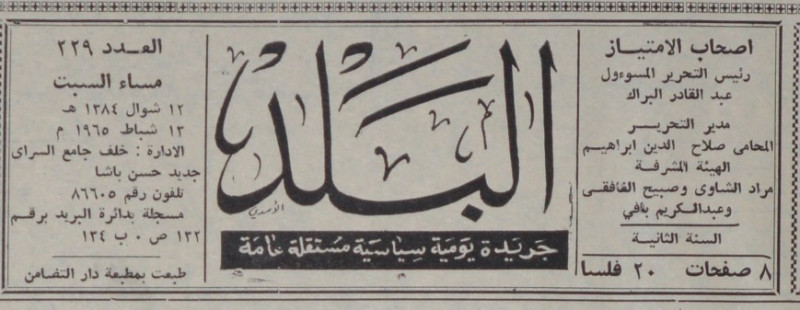 اصحاب الامتياز
رئيس التحرير المسوءول
عبد القادر البراك
مدير التحرير
المحامى صلاح الدين ابراهيم
الهيئة المشرفة
مراد الشاوى وصبيح الغافقى
وعبدالكريم بافي
السنة الثانية
٨ صفحات ٢٠ فلسا
البلد
الأسدي
جريدة يومية سياسية مستقلة عامة
العدد ٢٢٩
مساء السبت
١٢ شوال ١٣٨٤ هـ
١٣ شباط ١٩٦٥ م
الادارة : خلف جامع السراى
جديد حسن باشا
تلفون رقم ٨٦٦٠٥
مسجلة بدائرة البريد برقم
١٣٢ ص ٠ ب ١٣٤
طبعت بمطبعة دار التضامن